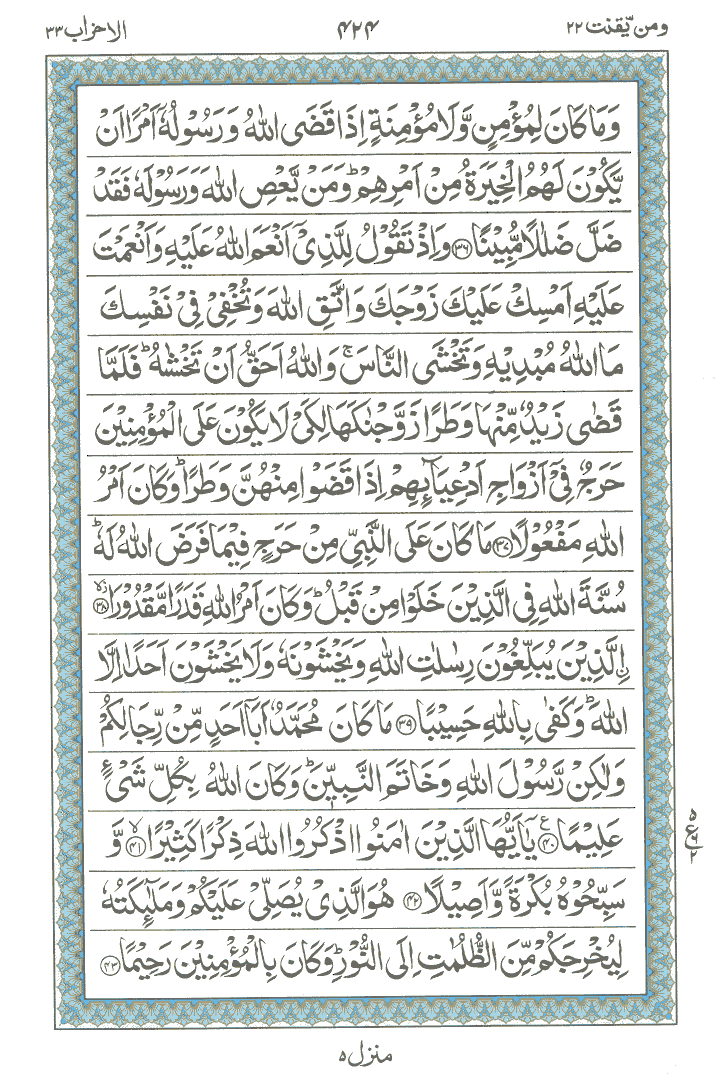 ومن یقنت ٢٢
٤٢٤
الاحزاب ٣٣
وَمَا كَانَ لِمُؤْمِنٍ وَّلَا مُؤْمِنَةٍ اِذَا قَضَى اللّٰهُ وَرَسُوْلُهٗۤ اَمْرًا اَنْ
يَّكُوْنَ لَهُمُ الْخِيَرَةُ مِنْ اَمْرِهِمْ ؕ وَمَنْ يَّعْصِ اللّٰهَ وَرَسُوْلَهٗ فَقَدْ
ضَلَّ ضَلٰلًا مُّبِيْنًا ﴿٣٦﴾ وَاِذْ تَقُوْلُ لِلَّذِيْۤ اَنْعَمَ اللّٰهُ عَلَيْهِ وَاَنْعَمْتَ
عَلَيْهِ اَمْسِكْ عَلَيْكَ زَوْجَكَ وَاتَّقِ اللّٰهَ وَتُخْفِيْ فِيْ نَفْسِكَ
مَا اللّٰهُ مُبْدِيْهِ وَتَخْشَى النَّاسَ ۚ وَاللّٰهُ اَحَقُّ اَنْ تَخْشٰىهُ ؕ فَلَمَّا
قَضٰى زَيْدٌ مِّنْهَا وَطَرًا زَوَّجْنٰكَهَا لِكَيْ لَا يَكُوْنَ عَلَى الْمُؤْمِنِيْنَ
حَرَجٌ فِيْۤ اَزْوَاجِ اَدْعِيَآئِهِمْ اِذَا قَضَوْا مِنْهُنَّ وَطَرًا ؕ وَكَانَ اَمْرُ
اللّٰهِ مَفْعُوْلًا ﴿٣٧﴾ مَا كَانَ عَلَى النَّبِيِّ مِنْ حَرَجٍ فِيْمَا فَرَضَ اللّٰهُ لَهٗ ؕ
سُنَّةَ اللّٰهِ فِي الَّذِيْنَ خَلَوْا مِنْ قَبْلُ ؕ وَكَانَ اَمْرُ اللّٰهِ قَدَرًا مَّقْدُوْرَا ﴿٣٨﴾
ِ۟الَّذِيْنَ يُبَلِّغُوْنَ رِسٰلٰتِ اللّٰهِ وَيَخْشَوْنَهٗ وَلَا يَخْشَوْنَ اَحَدًا اِلَّا
اللّٰهَ ؕ وَكَفٰى بِاللّٰهِ حَسِيْبًا ﴿٣٩﴾ مَا كَانَ مُحَمَّدٌ اَبَاۤ اَحَدٍ مِّنْ رِّجَالِكُمْ
وَلٰكِنْ رَّسُوْلَ اللّٰهِ وَخَاتَمَ النَّبِيّٖنَ ؕ وَكَانَ اللّٰهُ بِكُلِّ شَيْءٍ
عَلِيْمًا ﴿٤٠﴾ يٰۤاَيُّهَا الَّذِيْنَ اٰمَنُوا اذْكُرُوا اللّٰهَ ذِكْرًا كَثِيْرًا ﴿٤١﴾ وَّ
سَبِّحُوْهُ بُكْرَةً وَّاَصِيْلًا ﴿٤٢﴾ هُوَ الَّذِيْ يُصَلِّيْ عَلَيْكُمْ وَمَلٰٓئِكَتُهٗ
لِيُخْرِجَكُمْ مِّنَ الظُّلُمٰتِ اِلَى النُّوْرِ ؕ وَكَانَ بِالْمُؤْمِنِيْنَ رَحِيْمًا ﴿٤٣﴾
منزل ٥